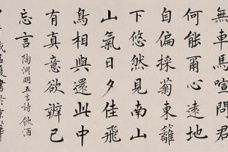 無車馬喧問君
何能爾心遠地
自偏採菊東籬
下悠然見南山
山氣日夕佳飛
鳥相與還此中
有真意欲辨已
忘言 陶淵明五言詩飲酒